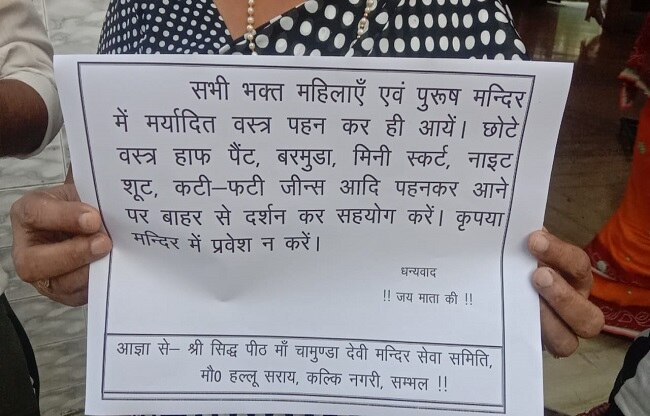 सभी भक्त महिलाएँ एवं पुरूष मन्दिर
में मर्यादित वस्त्र पहन कर ही आयें। छोटे
वस्त्र हाफ पैंट, बरमुडा, मिनी स्कर्ट, नाइट
शूट, कटी–फटी जीन्स आदि पहनकर आने
पर बाहर से दर्शन कर सहयोग करें। कृपया
मन्दिर में प्रवेश न करें।
धन्यवाद
!! जय माता की !!
आज्ञा से– श्री सिद्ध पीठ माँ चामुण्डा देवी मन्दिर सेवा समिति,
मौ0 हल्लू सराय, कल्कि नगरी, सम्भल !!